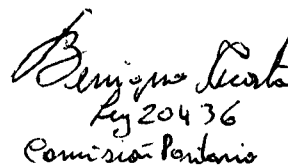 Benigno Acosta
Ley 20436
Comisión Paritario